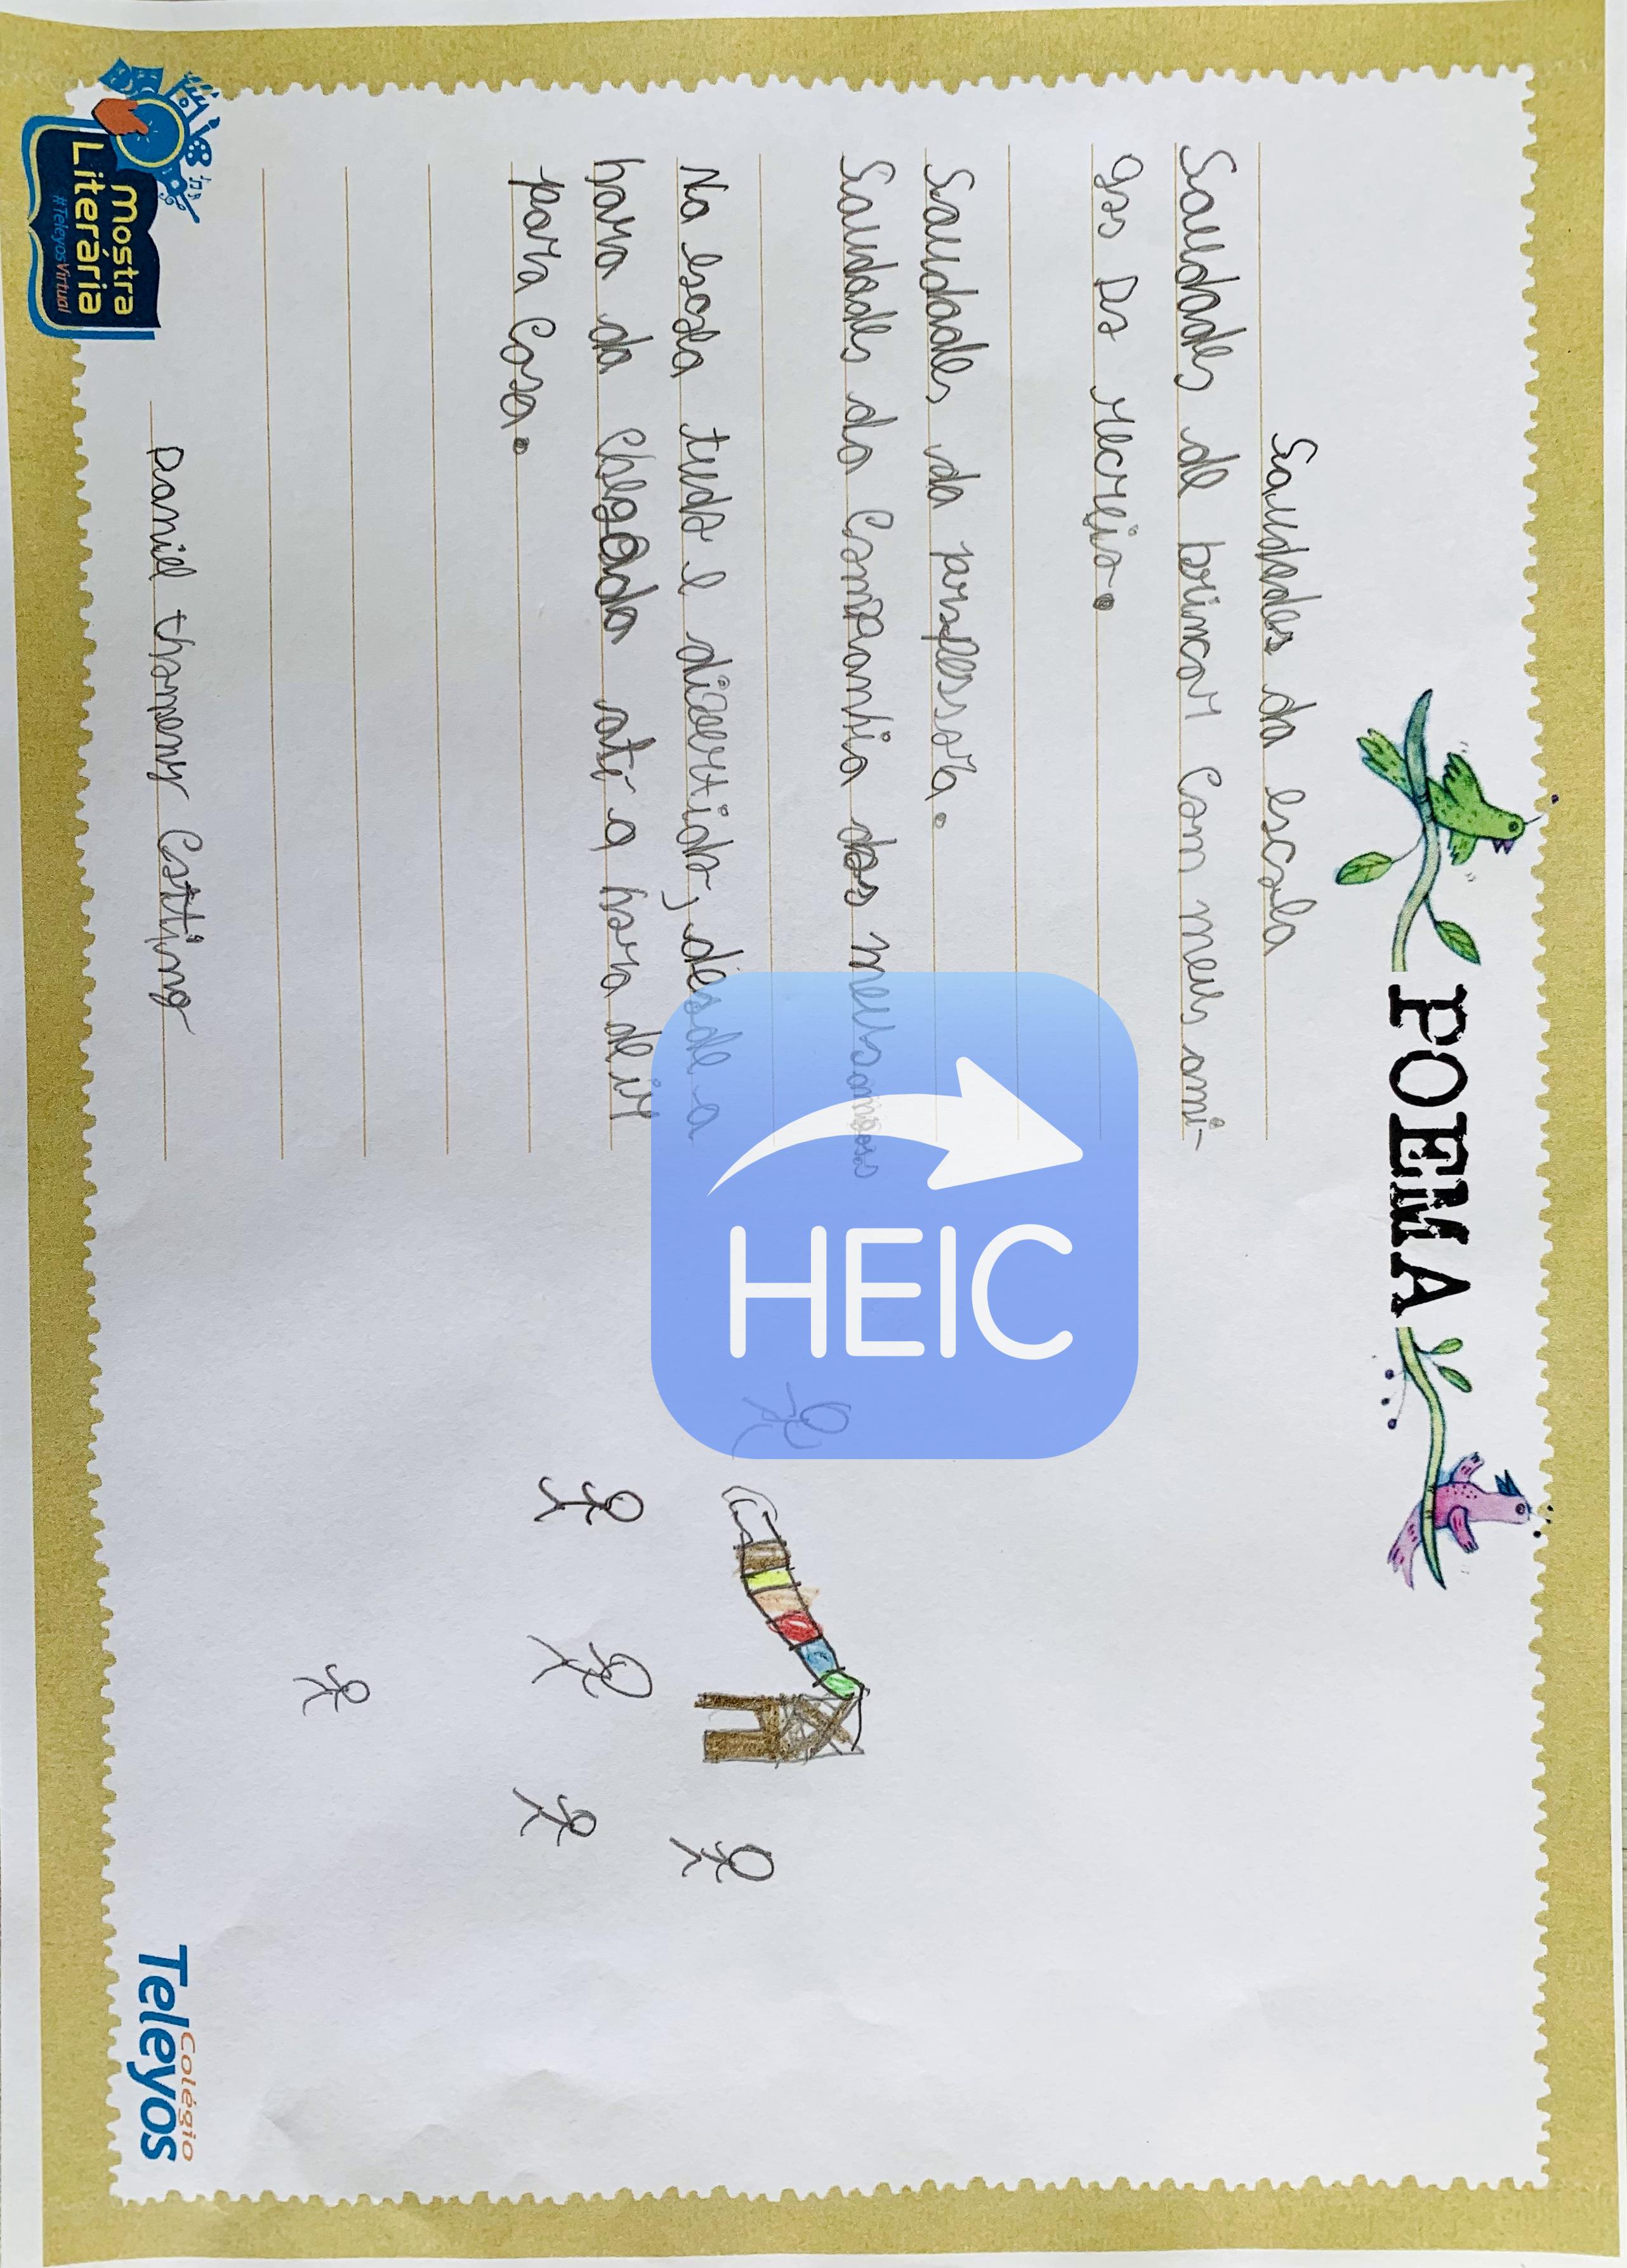 POEMA
Saudades da escola
Saudades de brincar com meus ami-
gos do recreio.
Saudades da professora.
Saudades da companhia dos meus amigos
Na escola tudo e divertido, desde a
hora da chegada ate a hora de ir
para casa.
Daniel thomeny
Mostra
Literária
#TeleyosVirtual
Colégio
Teleyos
HEIC